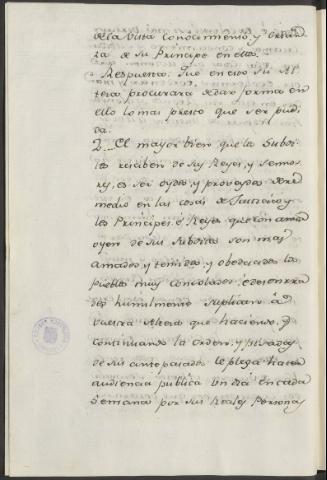 de la Vista Conocimiento, y Crian
za de su Principe en ellos.
Respuesta. Que en esso Su Al
teza procurara de dar forma en
ello lo mas presto que ser pudi
da.
2... El mayor bien que los Subdi
tos reciben de sus Reyes, y Seño
res, es ser oydos, y proveydos de re
medio en las cosas de Justicia, y
los Principes, é Reyes que con amor
oyen de sus Subditos son mas
amados, y temidos, y obedecidos, los
Pueblos muy consolados,
humilmente Suplican á
Vuestra Alteza que haciendo, y
continuando la orden, y
de sus antepasados le plega hacer
audiencia publica un dia en cada
Semana por sus Reales Personas